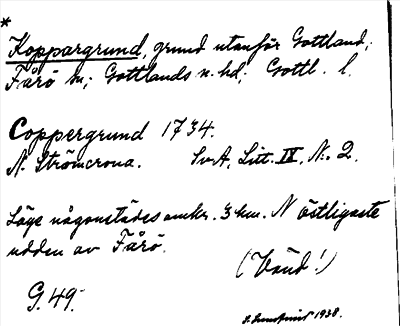 *
Koppargrund, grund utanför Gottland;
Fårö sn; Gottlands n. hd; Gottl. l.
Coppergrund 1734.
N. Strömcrona. SvA, Litt. IX, N:o 2.
Läge någonstädes omkr. 3 km. N östligaste
udden av Fårö.
(Vänd!)
G. 49.
1938.